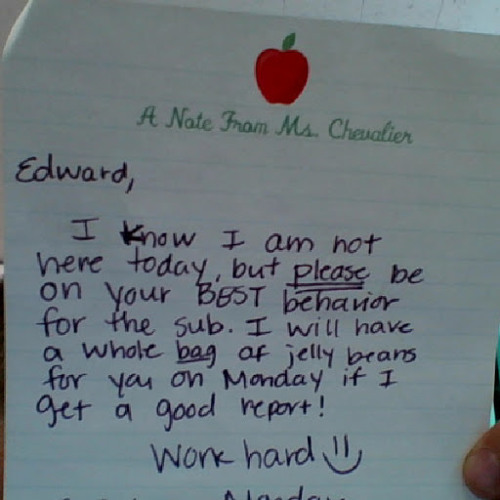 A Note From Ms. Chevalier
Edward,
I know I am not
here today, but please be
on your BEST behavior
for the sub. I will have
a whole bag of jelly beans
for you on Monday if I
get a good report!
Work hard